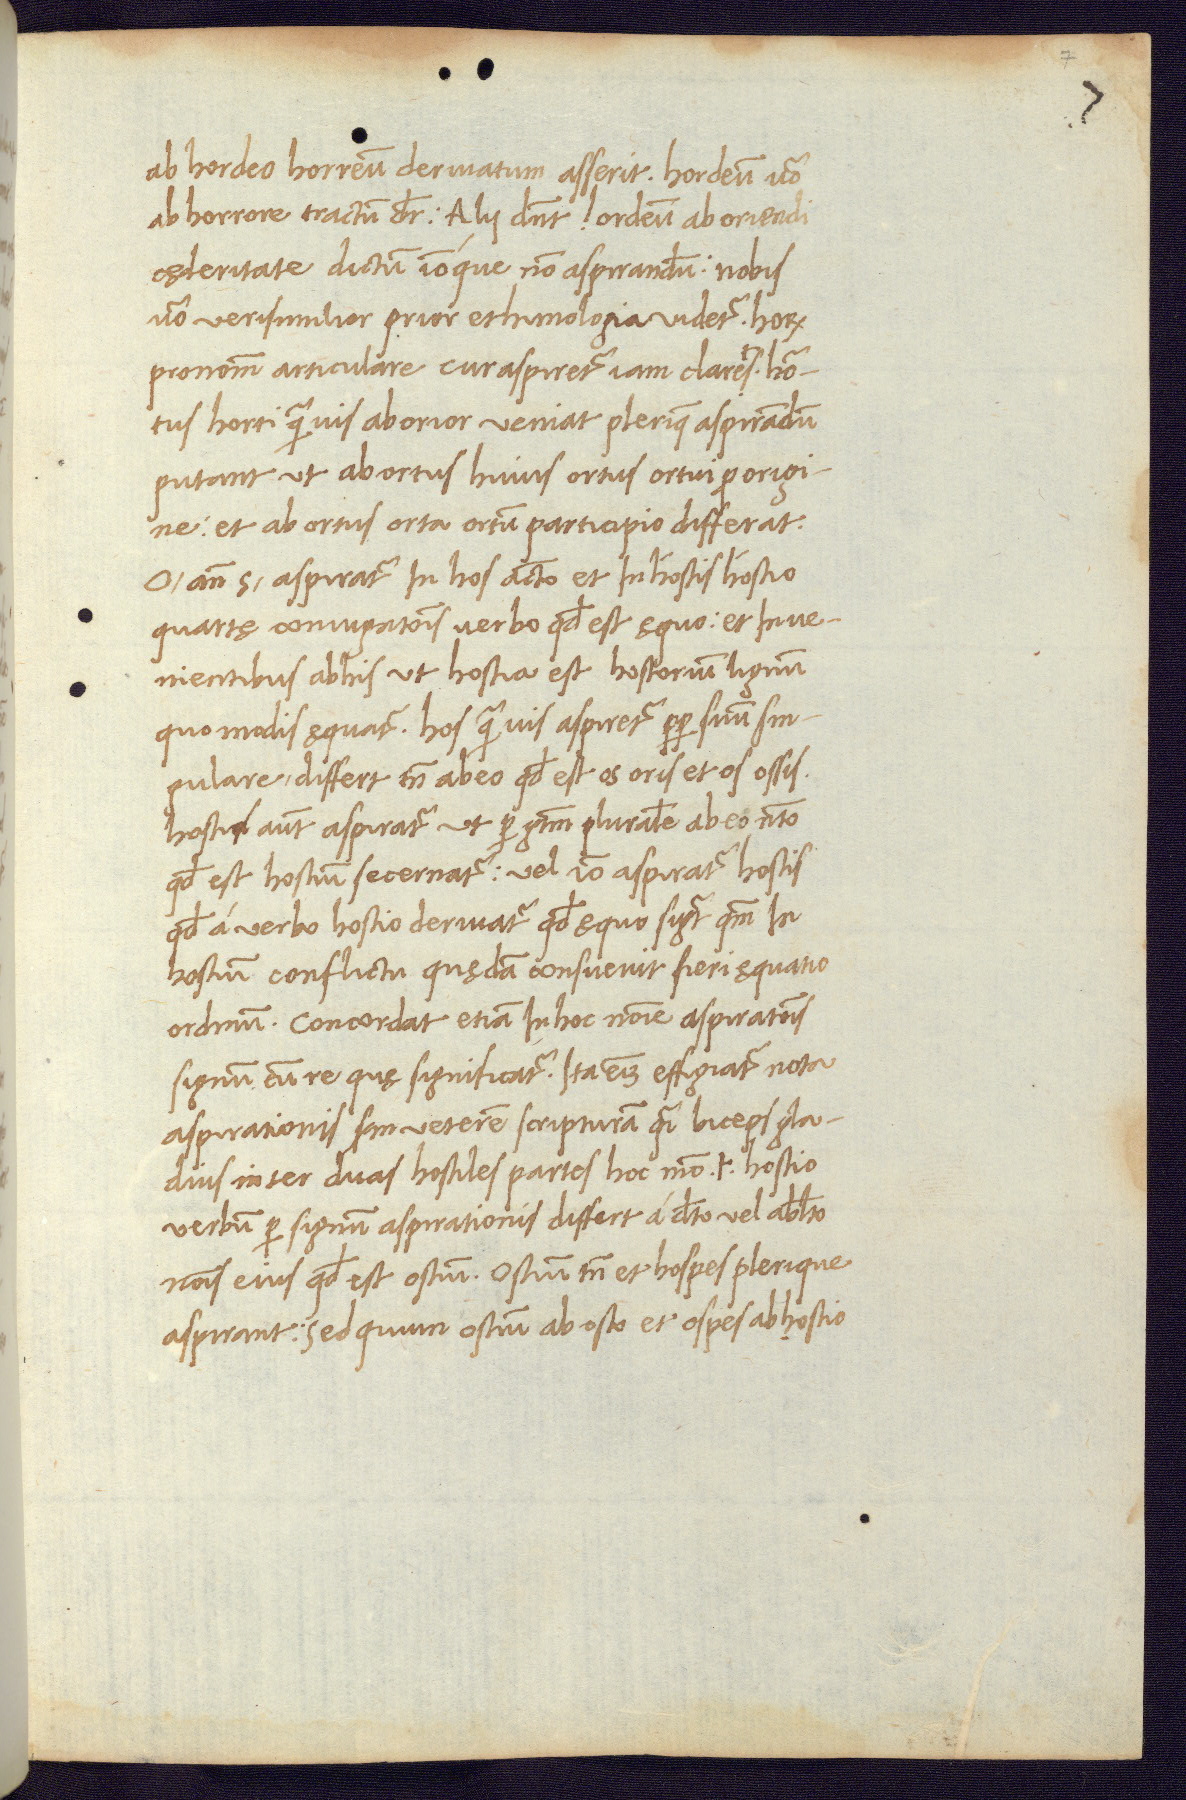 7
7
ab hordeo horreũ deriuatum asserit. hordeũ uõ
ab horrore tractũ dr̃: Alij dñt ordeũ ab oriendi
cęleritate dictũ iõque nõ aspirandũ: nobis
uõ verisimilior prior ethimologia videt᷑. horꝝ
pronom̃ articulare cur aspiret᷑ iam
tus horti q̃uis ab orior veniat pleriq̃ aspirãdũ
putant vt ab ortus huius ortus ortui ꝑ origi-
ne: et ab ortus orta ortũ participio differat:
O, añ s, aspirat᷑ In hos acto et In hostis hostio
quartę coniugatõis verbo qd̃ est ęquo: et In ue-
nientibus ab his vt hostia est hostoriũ lignũ
quo modis ęquat᷑. hos q̃uis aspiret᷑ suũ sin-
gulare, differt tñ ab eo qd̃ est os oris et os ossis.
hostiũ aũt aspirat᷑ vt ꝑ gt̃m plural̃e ab eo nt̃o
qd̃ est hostiũ secernat᷑: vel iõ aspirat᷑ hostis
qd̃ á verbo hostio deriuat᷑ qd̃ ęquo sigt̃ qm̃ In
hostium conflictu quędã consueuit fieri ęquatio
ordinũ. Concordat etiã In hoc nõie aspiratõis
signũ cũ re quę significat᷑. Ita eñ effigiat᷑ nota
aspirationis sm̃ veterẽ scripturã q̃i biceps gla-
dius inter duas hostiles partes hoc mõ. Ⱶ. hostio
verbũ ꝑ signũ aspirationis differt á dt̃o vel abl̃to
nõis eius qd̃ est ostiũ. Ostiũ tñ et hospes plerique
aspirant: Sed quum ostiũ ab osto et ospes ab hostio